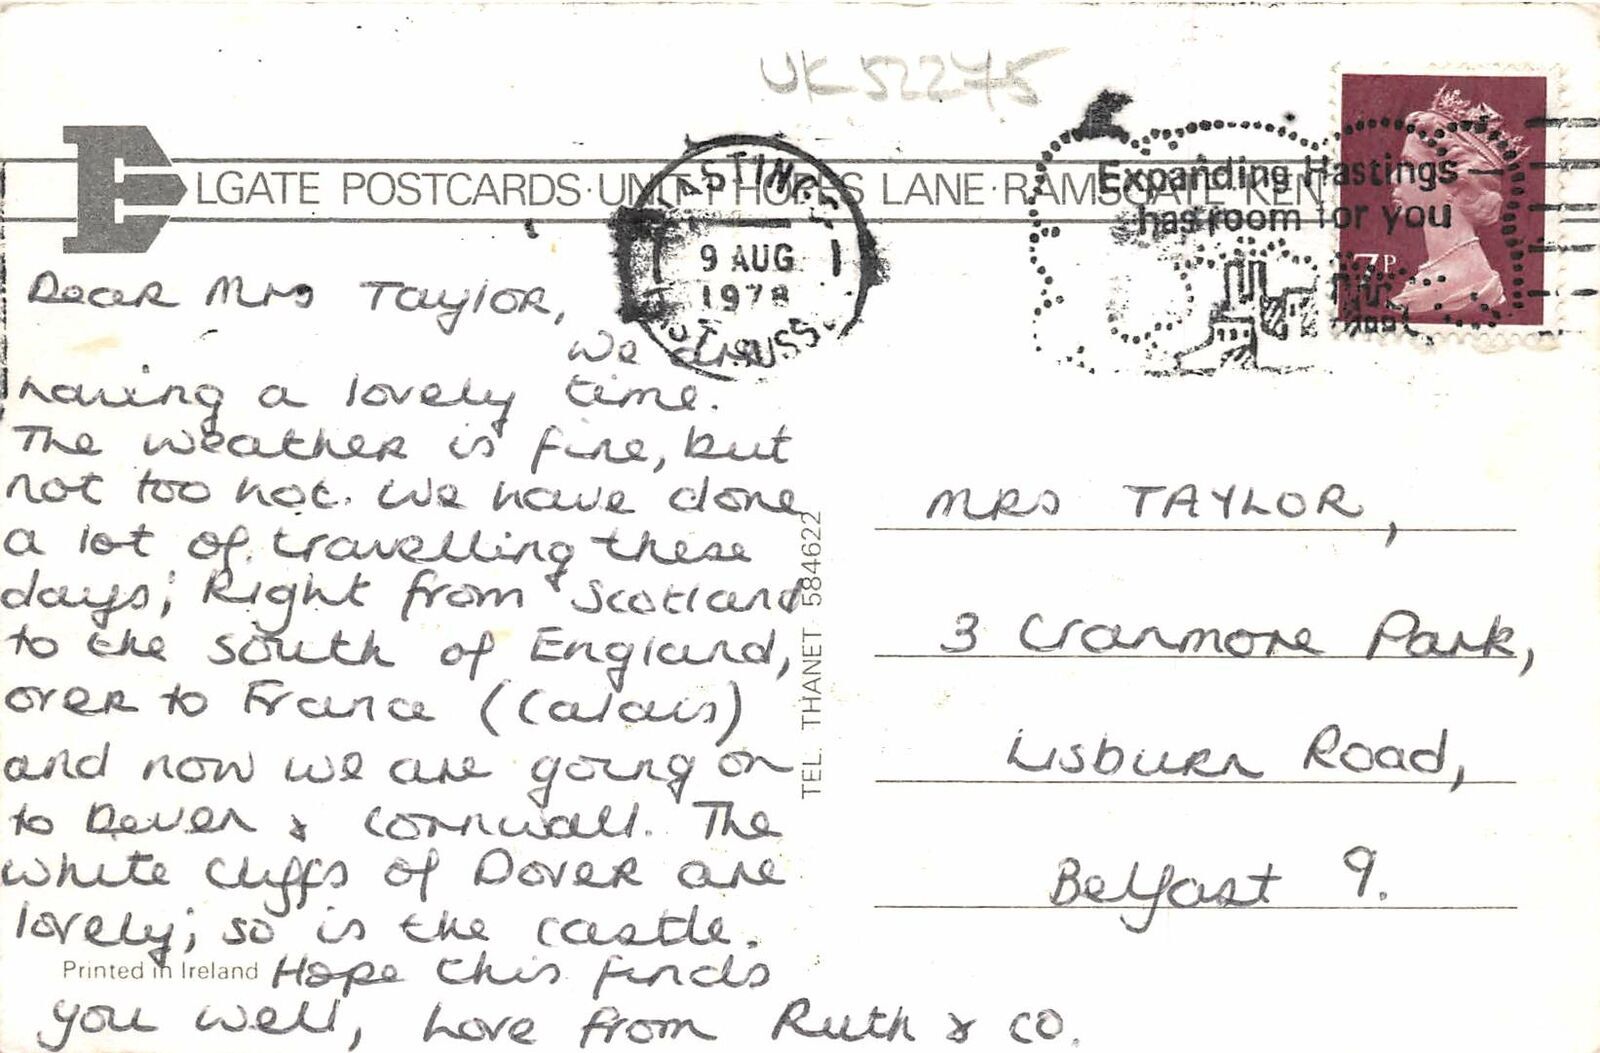 UK52275
ELGATE POSTCARDS·UNIT 1 HOPES LANE·RAMSGATE KENT
HASTINGS
9 AUG
1978
EAST SUSSEX
Expanding Hastings
has room for you
7P
Dear Mrs Taylor,
We are
having a lovely time.
The weather is fine, but
not too hot. We have done
a lot of travelling these
days; Right from Scotland
to the south of England,
over to France (Calais)
and now we are going on
to Deven & Cornwall. The
white cliffs of Dover are
lovely; so is the castle.
Hope this finds
you well, Love from Ruth & co.
Printed in Ireland
TEL. THANET 584622
MRS TAYLOR,
3 Cranmore Park,
Lisburn Road,
Belfast 9.